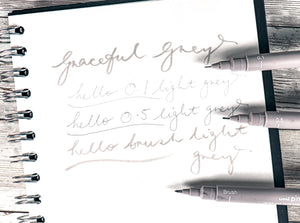 Graceful Grey
hello 0.1 light grey
hello 0.5 light grey
hello brush light
grey
Brush